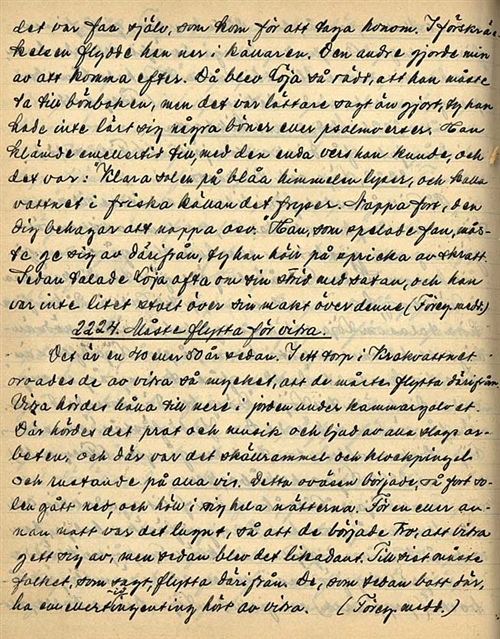 det var fan själv, som kom för att taga honom. I förskräc-
kelsen flydde han ner i källaren. Den andre gjorde min
av att komma efter. Då blev Töja så rädd, att han måste
ta till bönboken, men det var lättare sagt än gjort, ty han
hade inte lärt sig några böner eller psalmverser. Han
klämde emellertid till, med den enda vers han kunde, och
det var: "Klara solen på blåa himmelen lyser, och kalla
vattnet i friska källan det fryser. Nappa fort, den
dig behagar att nappa osv." Han, som spelade fan, mås-
te ge sig av därifrån, ty han höll på spricka av skratt.
Sedan talade Töja ofta om sin strid med satan, och han
var inte litet stolt över sin makt över denne. (Förey. medd.)
2224. Måste flytta för vitra.
Det är en 40 eller 50 år sedan. I ett torp i Krakvattnet
oroades de av vitra så mycket, att de måste flytta därifrån.
Vitra hördes hålla till nere i jorden under kammargolvet.
Där hördes det prat och musik och ljud av alla slags ar-
beten, och där var det skällrammel och klockpingel
och rustande på alla vis. Detta oväsen började, så fort so-
len gått ned, och höll i sig hela nätterna. För en eller an-
nan natt var det lugnt, så att de började tro, att vitra
gett sig av, men sedan blev det likadant. Till sist måste
folket, som sagt, flytta därifrån. De, som sedan bott där,
ha emellertid ingenting hört av vitra. (Förey. medd.)